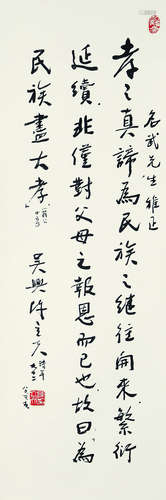 名武先生雅正
孝之真諦為民族之繼往開來繁衍
延續非僅對父母之報恩而已也故曰為
民族盡大孝
吳興陳立夫時年九十二